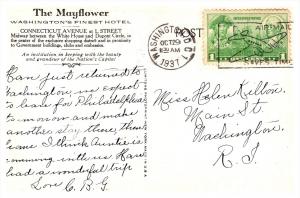 The Mayflower
WASHINGTON'S FINEST HOTEL
CONNECTICUT AVENUE at L STREET
Midway between the White House and Dupont Circle, in
the center of the exclusive shopping district and in proximity
to Government buildings, clubs and embassies.
An institution in keeping with the beauty
and grandeur of the Nation's Capital
WASHINGTON, D.C.
OCT 29
12 AM
1937
POST
AIR MAIL
Have just returned to
Washington, we expect
to leave for Philadelphia
tomorrow and make
another stay there, then
home I think Auntie is
coming with us. Have
had a wonderful trip
Love C. B. G.
Miss Helen Kelton
Main St.
Washington
R. I.